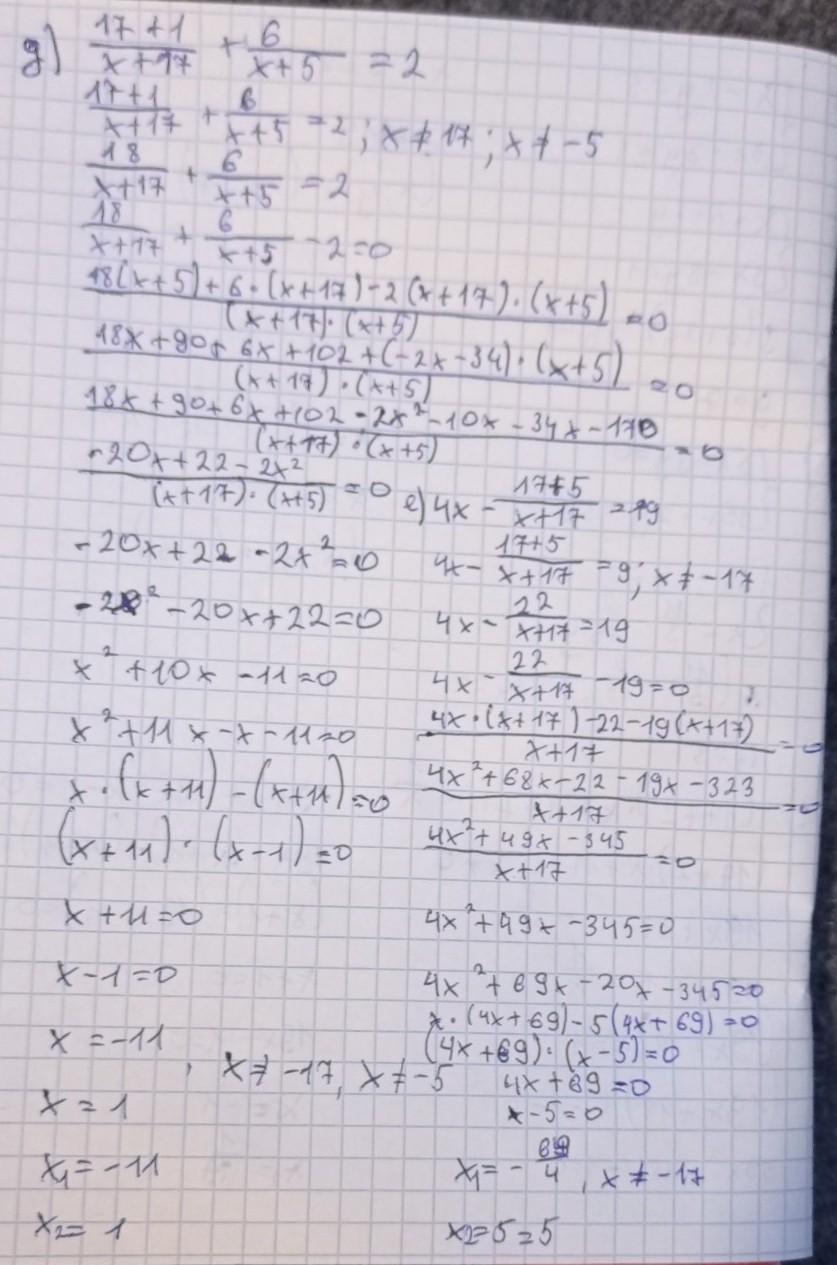 g) (17+1)/(x+17) + 6/(x+5) = 2
(17+1)/(x+17) + 6/(x+5) = 2 ; x ≠ 17 ; x ≠ -5
18/(x+17) + 6/(x+5) = 2
18/(x+17) + 6/(x+5) - 2 = 0
(18(x+5) + 6·(x+17) - 2(x+17)·(x+5))/((x+17)·(x+5)) = 0
(18x+90+6x+102+(-2x-34)·(x+5))/((x+17)·(x+5)) = 0
(18x+90+6x+102-2x²-10x-34x-170)/((x+17)·(x+5)) = 0
(-20x+22-2x²)/((x+17)·(x+5)) = 0
-20x+22-2x²=0
-2x²-20x+22=0
x²+10x-11=0
x²+11x-x-11=0
x·(x+11)-(x+11)=0
(x+11)·(x-1)=0
x+11=0
x-1=0
x=-11
x=1 , x≠-17, x≠-5
x₁=-11
x₂=1
e) 4x - (17+5)/(x+17) = 19
4x - (17+5)/(x+17) = 9; x≠-17
4x - 22/(x+17) = 19
4x - 22/(x+17) - 19 = 0
(4x·(x+17)-22-19(x+17))/(x+17) = 0
(4x²+68x-22-19x-323)/(x+17) = 0
(4x²+49x-345)/(x+17) = 0
4x²+49x-345=0
4x²+69x-20x-345=0
x·(4x+69)-5(4x+69)=0
(4x+69)·(x-5)=0
4x+69=0
x-5=0
x₁=-69/4 , x≠-17
x₂=5=5